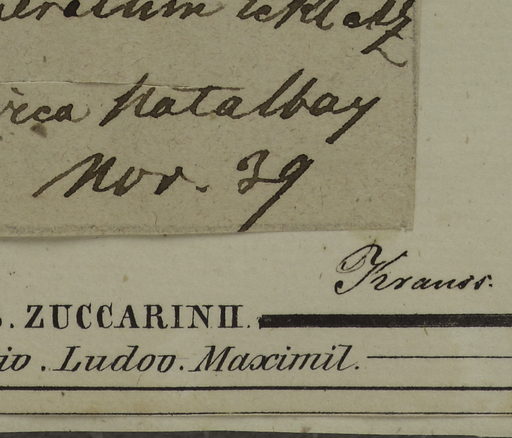 eratum Eckl et Z
circa Natalbay
Nov. 39
Krauss.
. ZUCCARINII.
io. Ludov. Maximil.